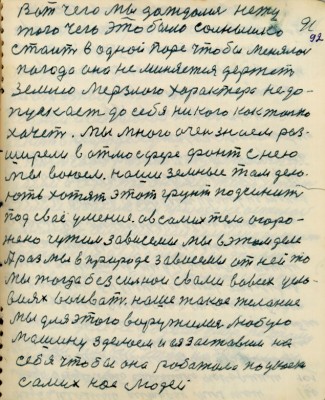 Вот чего мы дождались нету
того чего это было солнышко
91
92
стоит в одной поре чтобы менялась
погода она не меняется держит
землю мерзлого характера не до-
пускает до себя никого как только
хочет. Мы много очен знаем рас-
ширели в атмосфере фронт с нею
мы воюем. наши земные там дело-
хотят этот грунт подчинит
под своё умение. а в самих тело огоро-
жено чужим зависеми мы в этом деле
А раз мы в природе зависеми от ней то
мы тогда без силнои свами во всех усло-
виях воиват. наше такое желание
мы для этого вооружилися любую
машину зделоем и её заставим на
себя чтобы она работала
самих нас людей